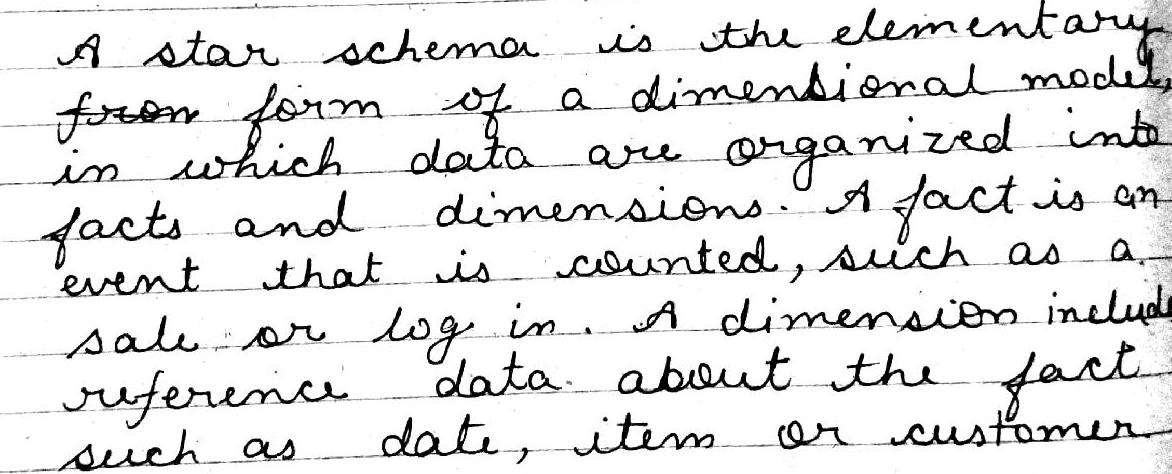 A star schema is the elementary
fron form of a dimensional model,
in which data are organized into
facts and dimensions. A fact is an
event that is counted, such as a
sale or log in. A dimension includ
reference data about the fact
such as date, item or customer